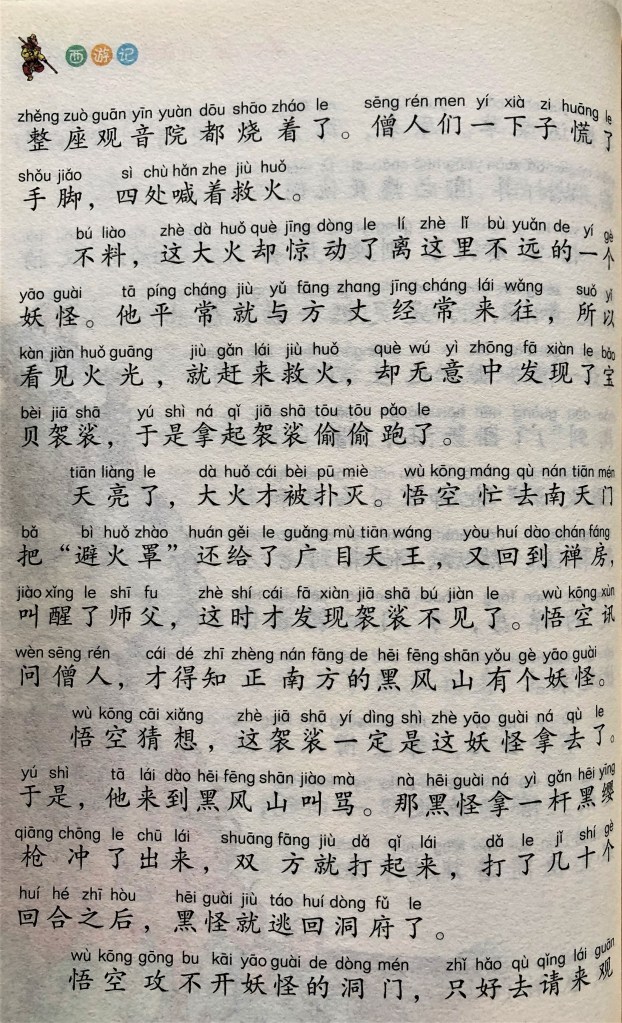 西游记
zhěng zuò guān yīn yuàn dōu shāo zháo le sēng rén men yí xià zi huāng le
整座观音院都烧着了。僧人们一下子慌了
shǒu jiǎo sì chù hǎn zhe jiù huǒ
手脚，四处喊着救火。
bú liào zhè dà huǒ què jīng dòng le lí zhè lǐ bù yuǎn de yí gè
不料，这大火却惊动了离这里不远的一个
yāo guài tā píng cháng jiù yǔ fāng zhang jīng cháng lái wǎng suǒ yǐ
妖怪。他平常就与方丈经常来往，所以
kàn jiàn huǒ guāng jiù gǎn lái jiù huǒ què wú yì zhōng fā xiàn le bǎo
看见火光，就赶来救火，却无意中发现了宝
bèi jiā shā yú shì ná qǐ jiā shā tōu tōu pǎo le
贝袈裟，于是拿起袈裟偷偷跑了。
tiān liàng le dà huǒ cái bèi pū miè wù kōng máng qù nán tiān mén
天亮了，大火才被扑灭。悟空忙去南天门
bǎ bì huǒ zhào huán gěi le guǎng mù tiān wáng yòu huí dào chán fáng
把“避火罩”还给了广目天王，又回到禅房，
jiào xǐng le shī fu zhè shí cái fā xiàn jiā shā bú jiàn le wù kōng xùn
叫醒了师父，这时才发现袈裟不见了。悟空讯
wèn sēng rén cái dé zhī zhèng nán fāng de hēi fēng shān yǒu gè yāo guài
问僧人，才得知正南方的黑风山有个妖怪。
wù kōng cāi xiǎng zhè jiā shā yí dìng shì zhè yāo guài ná qù le
悟空猜想，这袈裟一定是这妖怪拿去了。
yú shì tā lái dào hēi fēng shān jiào mà nà hēi guài ná yì gǎn hēi yīng
于是，他来到黑风山叫骂。那黑怪拿一杆黑缨
qiāng chōng le chū lái shuāng fāng jiù dǎ qǐ lái dǎ le jǐ shí gè
枪冲了出来，双方就打起来，打了几十个
huí hé zhī hòu hēi guài jiù táo huí dòng fǔ le
回合之后，黑怪就逃回洞府了。
wù kōng gōng bu kāi yāo guài de dòng mén zhǐ hǎo qù qǐng lái guān
悟空攻不开妖怪的洞门，只好去请来观